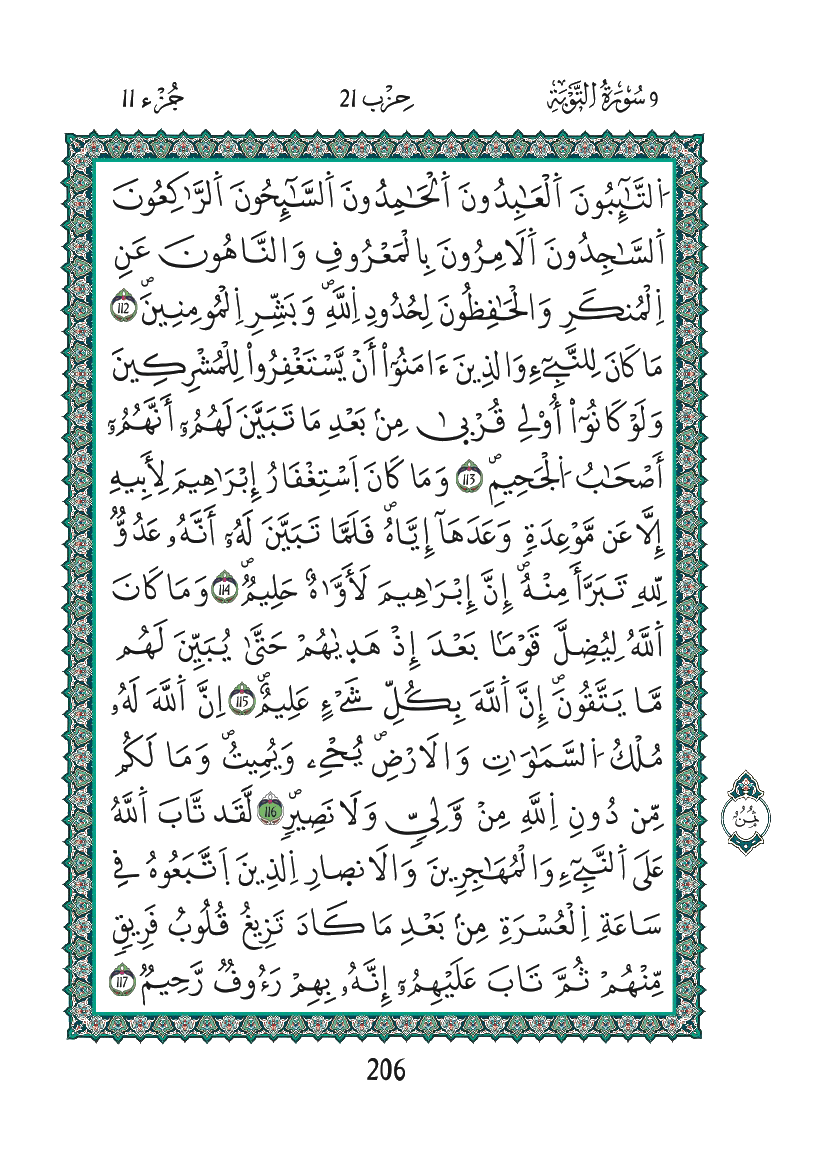 9 سُورَةُ التَّوْبَةِ
حِزْب 21
جُزْء 11
اَ۬لتَّٰٓئِبُونَ اَ۬لْعَٰبِدُونَ اَ۬لْحَٰمِدُونَ اَ۬لسَّٰٓئِحُونَ اَ۬لرَّٰكِعُونَ
اَ۬لسَّٰجِدُونَ اَ۬لَامِرُونَ بِالْمَعْرُوفِ وَالنَّاهُونَ عَنِ
اِ۬لْمُنكَرِ وَالْحَٰفِظُونَ لِحُدُودِ اِ۬للَّهِۖ وَبَشِّرِ اِ۬لْمُومِنِينَۖ 112
مَا كَانَ لِلنَّبِيٓءِ وَالذِينَ ءَامَنُوٓاْ أَنْ يَّسْتَغْفِرُواْ لِلْمُشْرِكِينَ
وَلَوْ كَانُوٓاْ أُوْلِي قُرْبيٰ مِنۢ بَعْدِ مَا تَبَيَّنَ لَهُمُۥٓ أَنَّهُمُۥٓ
أَصْحَٰبُ اُ۬لْجَحِيمِۖ 113 وَمَا كَانَ اَ۪سْتِغْفَارُ إِبْرَٰهِيمَ لِأَبِيهِ
إِلَّا عَن مَّوْعِدَةٖ وَعَدَهَآ إِيَّاهُۖ فَلَمَّا تَبَيَّنَ لَهُۥٓ أَنَّهُۥ عَدُوّٞ
لِّلهِ تَبَرَّأَ مِنْهُۖ إِنَّ إِبْرَٰهِيمَ لَأَوَّٰهٌ حَلِيمٞۖ 114 وَمَا كَانَ
اَ۬للَّهُ لِيُضِلَّ قَوْماَۢ بَعْدَ إِذْ هَدٜيٰهُمْ حَتَّىٰ يُبَيِّنَ لَهُم
مَّا يَتَّقُونَۖ إِنَّ اَ۬للَّهَ بِكُلِّ شَےْءٍ عَلِيمٌۖ 115 اِنَّ اَ۬للَّهَ لَهُۥ
مُلْكُ اُ۬لسَّمَٰوَٰتِ وَالَارْضِۖ يُحْيِۦ وَيُمِيتُۖ وَمَا لَكُم
مِّن دُونِ اِ۬للَّهِ مِنْ وَّلِيّٖ وَلَا نَصِيرٖۖ 116 لَّقَد تَّابَ اَ۬للَّهُ
عَلَى اَ۬لنَّبِيٓءِ وَالْمُهَٰجِرِينَ وَالَانصٜارِ اِ۬لذِينَ اَ۪تَّبَعُوهُ فِي
سَاعَةِ اِ۬لْعُسْرَةِ مِنۢ بَعْدِ مَا كَادَ تَزِيغُ قُلُوبُ فَرِيقٖ
مِّنْهُمْ ثُمَّ تَابَ عَلَيْهِمُۥٓ إِنَّهُۥ بِهِمْ رَءُوفٞ رَّحِيمٞ 117
ثُمُن
206